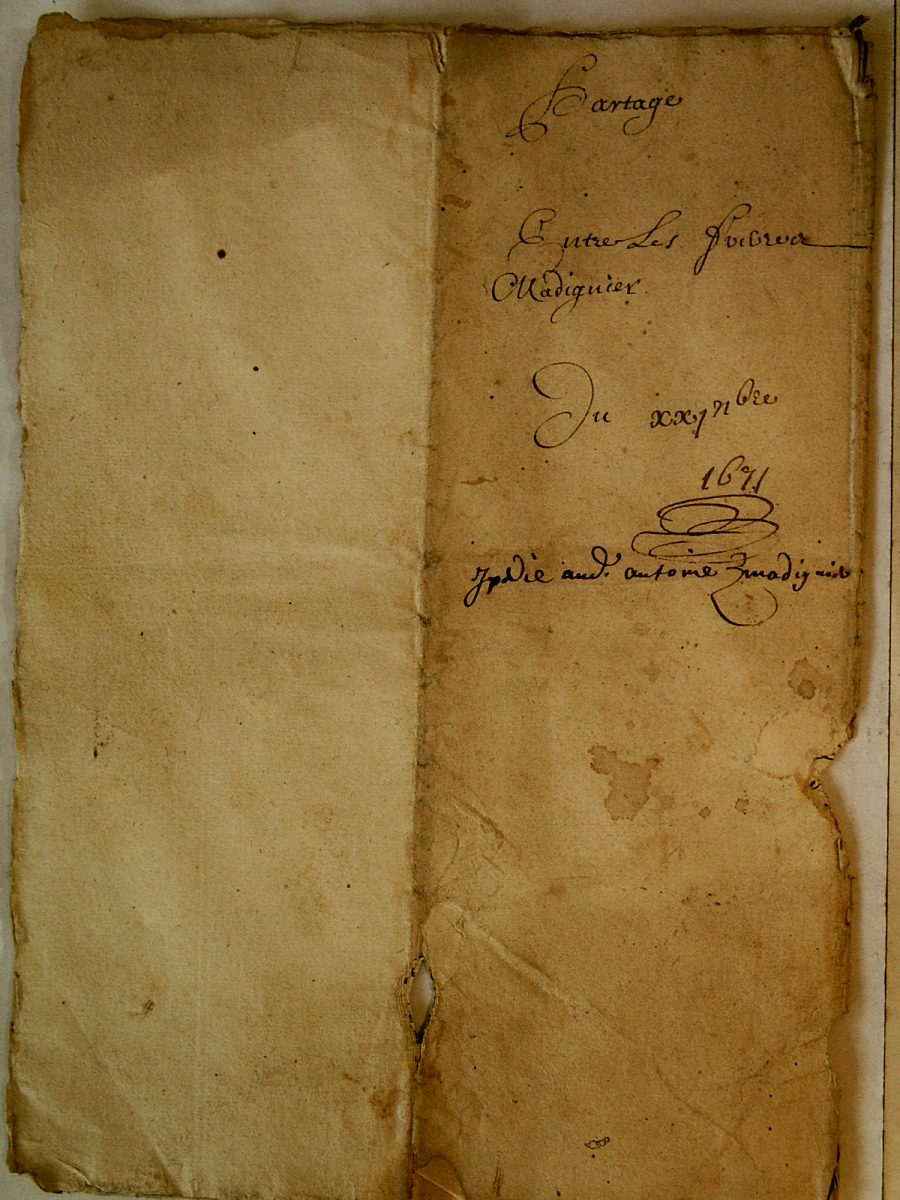 Partage
Entre Les freres
Madignier
Du xxj 9bre
1671
expedié aud. antoine madignier